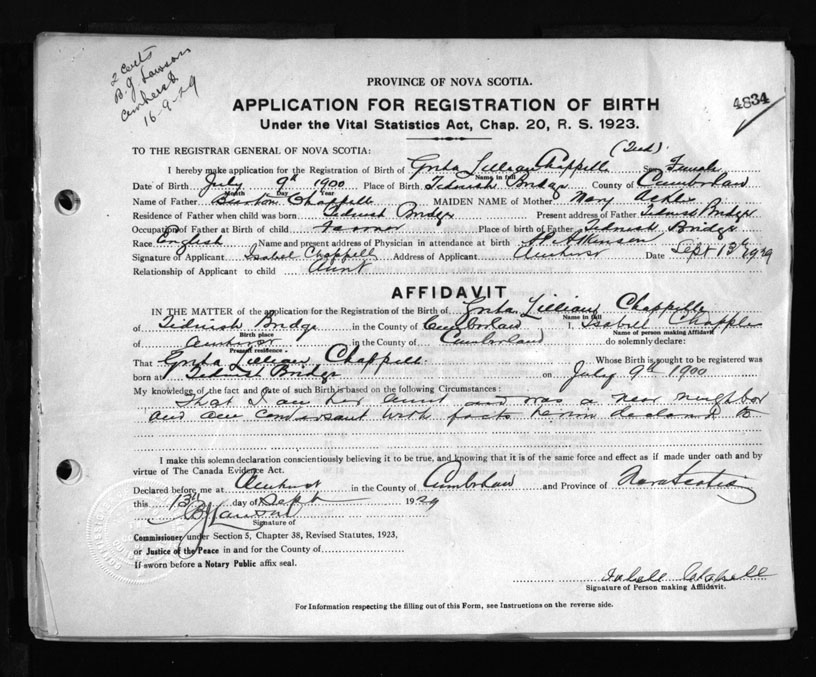 2 Certs
B. J. Lawson
Amherst
16-9-29
PROVINCE OF NOVA SCOTIA.
APPLICATION FOR REGISTRATION OF BIRTH
4834
Under the Vital Statistics Act, Chap. 20, R. S. 1923.
TO THE REGISTRAR GENERAL OF NOVA SCOTIA:
I hereby make application for the Registration of Birth of Greta Lillian Chappell Sex Female
Name in full
Date of Birth July 9th 1900 Place of Birth Tidnish Bridge County of Cumberland
Month Day Year
Name of Father Burton Chappell MAIDEN NAME of Mother Mary
Residence of Father when child was born Tidnish Bridge Present address of Father Tidnish Bridge
Occupation of Father at Birth of child Farmer Place of birth of Father Tidnish Bridge
Race English Name and present address of Physician in attendance at birth Atkinson
Signature of Applicant Isabel Chappell Address of Applicant Amherst Date Sept 13th 1929
Relationship of Applicant to child Aunt
AFFIDAVIT
IN THE MATTER of the application for the Registration of the Birth of Greta Lillian Chappell
Name in full
of Tidnish Bridge in the County of Cumberland I, Isabel Chappell
Birth place Name of person making Affidavit
of Amherst in the County of Cumberland do solemnly declare:
Present residence.
That Greta Lillian Chappell. Whose Birth is sought to be registered was
born at Tidnish Bridge on July 9th 1900
My knowledge of the fact and date of such Birth is based on the following Circumstances:
That I am her Aunt and was a near neighbor
and am conversant with facts herein declared to
I make this solemn declaration conscientiously believing it to be true, and knowing that it is of the same force and effect as if made under oath and by
virtue of The Canada Evidence Act.
Declared before me at Amherst in the County of Cumberland and Province of Nova Scotia
this 13th day of Sept 1929
B J Lawson
Signature of
Commissioner under Section 5, Chapter 38, Revised Statutes, 1923,
or Justice of the Peace in and for the County of
If sworn before a Notary Public affix seal.
Isabell Chappell
Signature of Person making Affidavit.
For Information respecting the filling out of this Form, see Instructions on the reverse side.